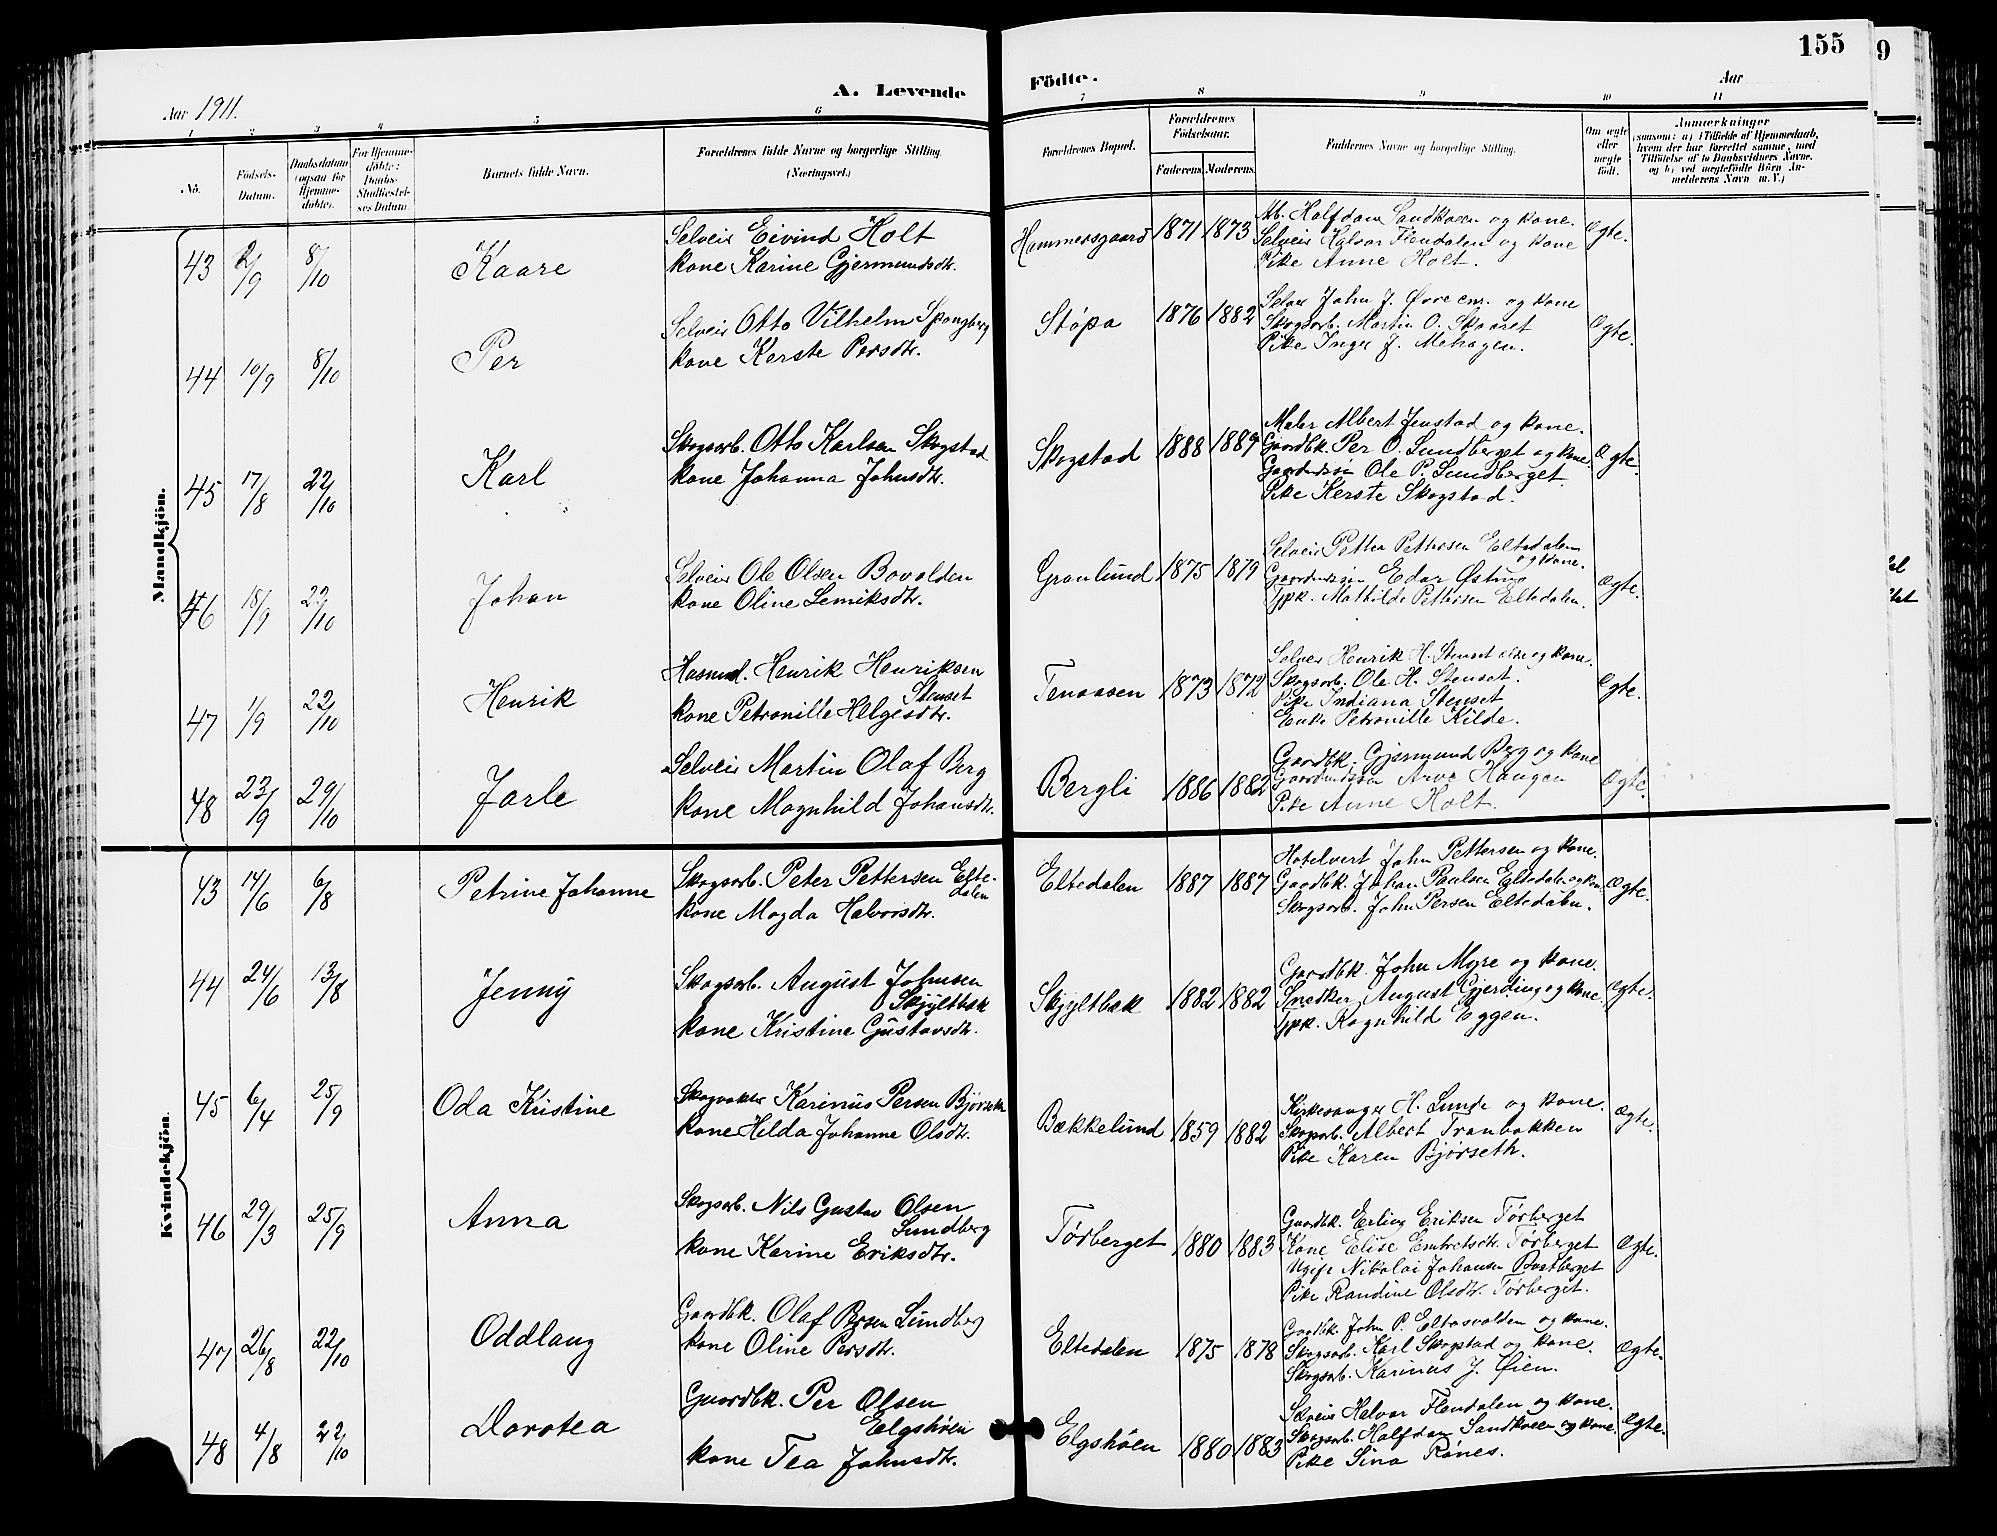 155
9
Aar 1911.
A. Levende
Födte.
Aar
1 2 3 4 5 6 7 8 9 10 11
No.
Födsels-
Datum.
Daabsdatum
(ogsaa for
Hjemme-
døbte).
For Hjemme-
döbte:
Daabs-
Stadfæstel-
ses Datum
Barnets fulde Navn.
Forældrenes fulde Navne og borgerlige Stilling
(Næringsvei.)
Forældrenes Bopæl.
Forældrenes
Födselsaar.
Faderens. Moderens.
Faddernes Navne og borgerlige Stilling.
Om ægte
eller
uægte
født.
Anmærkninger
(saasom: a) i Tilfælde af Hjemmedaab,
hvem der har forrettet samme, med
Tilföielse af to Daabsvidners Navne.
og b) ved uægtefödte Börn An-
melderens Navn m. V.)
Mandkjön.
43 2/9 8/10 Kaare
Selveir Eivind Holt
kone Karine Gjermundsdtr.
Hammersgaard 1871 1873
Halfdan Sandkveen og kone.
Selveir Halvor Flendalen og kone
Pike Anne Holt.
Ægte.
44 10/9 8/10 Per
Selveir Otto Vilhelm Spangberg
kone Kerste Persdtr.
Støpa 1876 1882
Selvei John J. Øvre enr. og kone
Skogsarb. Martin O. Skaaret
Pike Inger J. Mehagen.
Ægte.
45 17/8 22/10 Karl
Skogsarb. Otto Karlsen Skogstad
kone Johanna Johnsdtr.
Skogstad 1888 1889
Maler Albert Jenstad og kone.
Gaardbk. Per O. Sundberget og kone.
Gaardmdsøn Ole P. Sundberget.
Pike Kerste Skogstad.
Ægte.
46 18/9 22/10 Johan
Selveir Ole Olsen Bovolden
kone Oline Lemiksdtr.
Granlund 1875 1879
Selveir Petter Pettersen Eltedalen
og kone.
Gaardmdsøn Edar Østmo
Tjpk. Mathilde Pettersen Eltedalen.
Ægte.
47 1/9 22/10 Henrik
Husmd. Henrik Henriksen
Stenset
kone Petronille Helgesdtr.
Tenaasen 1873 1872
Selveir Henrik H. Stenset eldre og kone.
Skogsarb. Ole H. Stenset.
Pike Indiana Stenset
Enke Petronille Kilde.
Ægte.
48 23/9 29/10 Jarle
Selveir Martin Olaf Berg
kone Magnhild Johansdtr.
Bergli 1886 1882
Gaardbk. Gjermund Berg og kone
Gaardmdsøn Arve Haugen
Pike Anne Holt.
Ægte.
Kvindekjön.
43 14/6 6/8 Petrine Johanne
Skogsarb. Peter Pettersen Elte-
dalen
kone Magda Halvorsdtr.
Eltedalen 1887 1887
Hotelvert John Pettersen og kone.
Gaardbk. Johan Paulsen Eltedalen og kone
Skogsarb. John Persen Eltedalen.
Ægte.
44 24/6 13/8 Jenny
Skogsarb. August Johnsen
Skjyltbæk
kone Kristine Gustavsdtr.
Skjyltbæk 1882 1882
Gaardbk. John Myre og kone.
Snedker August Gjerding og kone.
Tjpk. Ragnhild Eggen.
Ægte.
45 6/4 25/9 Oda Kristine
Skogvokter Karinus Persen Bjørseth
kone Hilda Johanne Olsdtr.
Bækkelund 1859 1882
Kirkesanger H. Lunde og kone.
Skogsarb. Albert Tranbakken
Pike Karen Bjørseth.
Ægte.
46 29/3 25/9 Anna
Skogsarb. Nils Gustav Olsen
Sundberg
kone Karine Eriksdtr.
Tørberget 1880 1883
Gaardbk. Erling Eriksen Tørberget
Kone Elise Embretsdtr. Tørberget
Ugift Nikolai Johansen Bastberget
Pike Randine Olsdtr. Tørberget.
Ægte.
47 26/8 22/10 Oddlaug
Gaardbk. Olaf Persen Sundberg
kone Oline Persdtr.
Eltedalen 1875 1878
Gaardbk. John P. Eltosvolden og kone.
Skogsarb. Karl Skogstad og kone.
Skogsarb. Karinus J. Øien.
Ægte.
48 4/8 22/10 Dorotea
Gaardbk. Per Olsen
Elgshøen
kone Tea Johnsdtr.
Elgshøen 1880 1883
Selveir Halvor Flendalen og kone.
Skogsarb. Halfdan Sandkveen og kone.
Pike Sina Rønes.
Ægte.